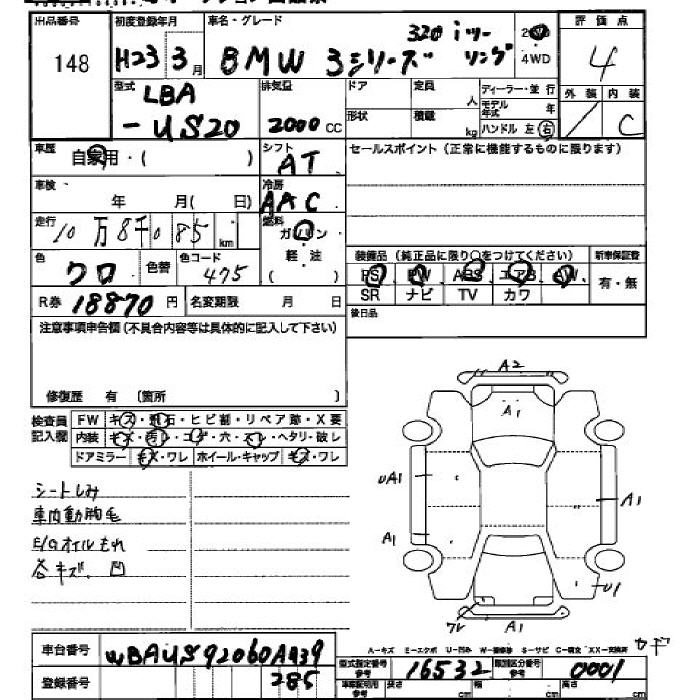 出品番号 148
初度登録年月 H23 3月
車名・グレード BMW 3シリーズ 320 iツーリング
4WD
評価点 4
外装 内装 C
型式 LBA-US20
排気量 2000 CC
ドア 定員 人
形状 積載 kg
ディーラー・並行
モデル年式 年
ハンドル 左 右
車歴 自家用・( )
シフト AT
セールスポイント(正常に機能するものに限ります)
車検 年 月( 日)
冷房 AAC
走行 10万8千085 km
燃料 ガソリン
軽・油
( )
色 クロ 色替 色コード 475
装備品(純正品に限り○をつけてください) 新車保証書
PS PW ABS エアB AW 有・無
SR ナビ TV カワ
R券 18870円 名変期限 月 日
後日品
注意事項申告欄(不具合内容等は具体的に記入して下さい)
修復歴 有 〔箇所 〕
検査員記入欄
FW キズ・飛石・ヒビ割・リペア跡・X要
内装 キズ・汚レ・コゲ・穴・スレ・ヘタリ・破レ
ドアミラー キズ・ワレ ホイール・キャップ キズ・ワレ
A2
A1
UA1
A1
A1
U1
ワレ
A1
シートしみ
車内動胸毛
E/Gオイルもれ
各キズ、凹
A-キズ E-エクボ U-凹み W-補修跡 S-サビ C-腐食 XX-交換済
車台番号 WBAUS92060A939285
登録番号
型式指定番号 参考 16532 類別区分番号 参考 0001
長さ cm 幅 cm 高さ cm